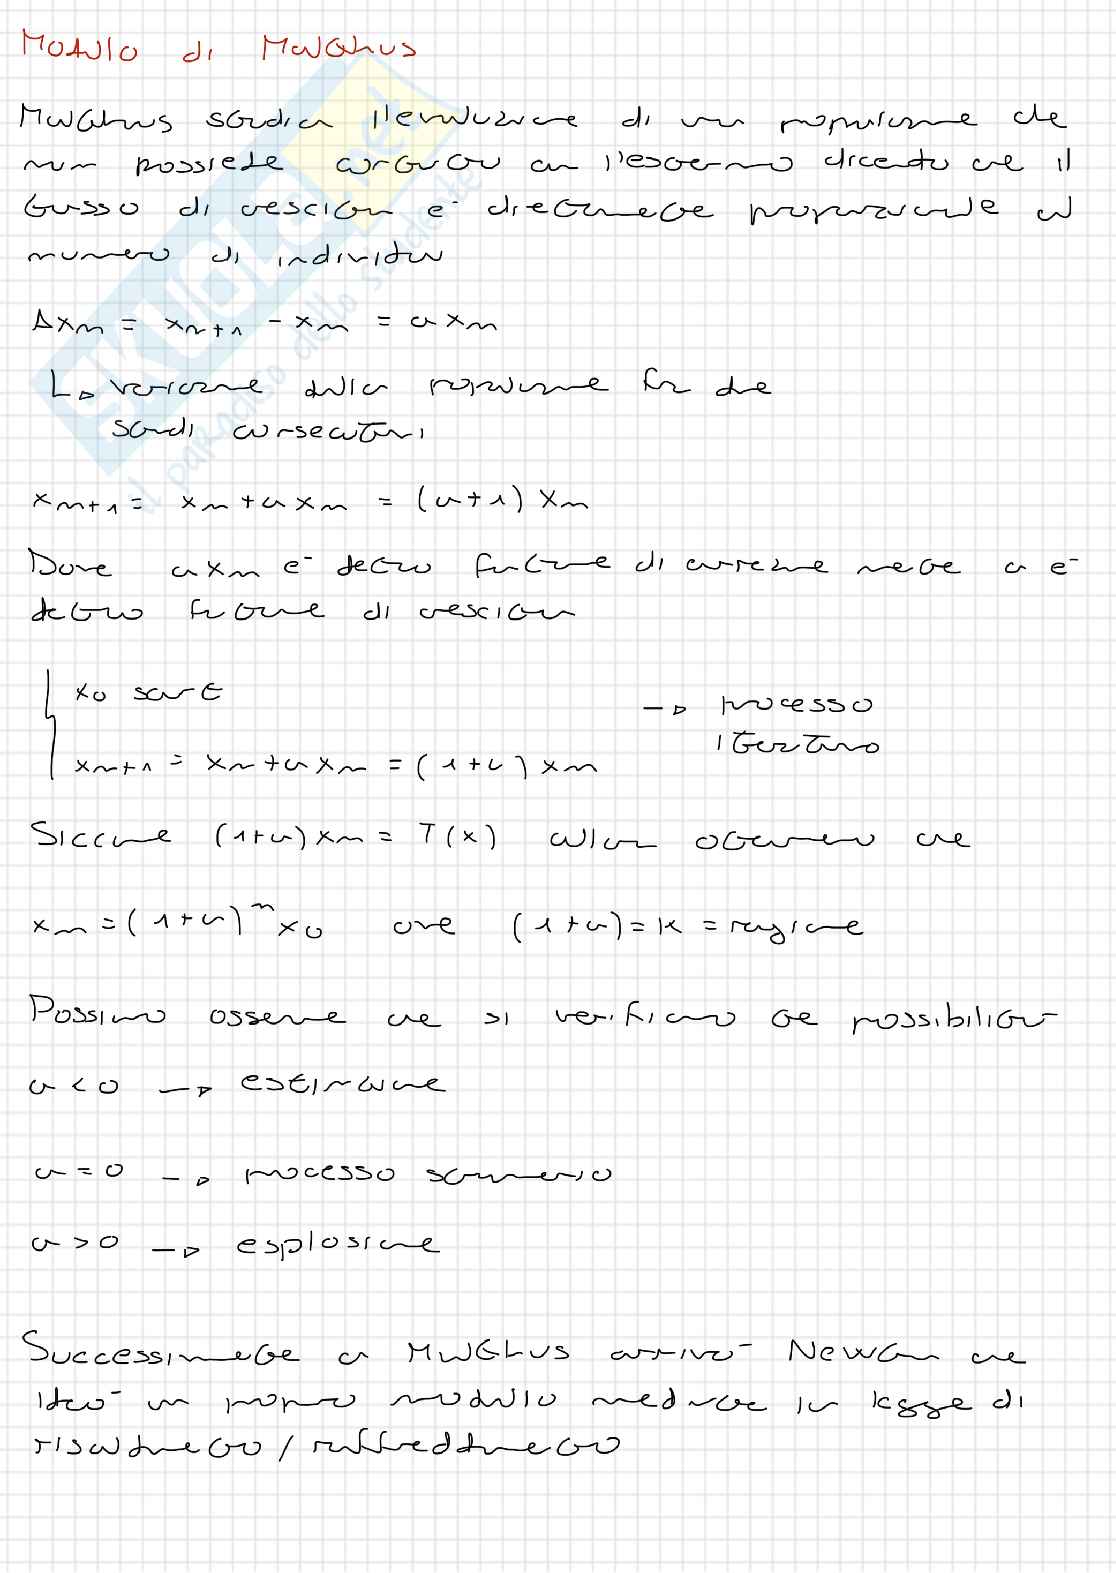 Modulo di Malthus
Malthus studia l'evoluzione di una popolazione che
non possiede contatti con l'esterno dicendo che il
tasso di crescita e' direttamente proporzionale al
numero di individui
Δxn = xn+1 - xn = a xn
L▷ variazione della popolazione fra due
stadi consecutivi
xn+1 = xn + a xn = (a+1) xn
Dove a xn e' detto funzione di mentre a e'
detto fattore di crescita
x0 start
→ processo
iterativo
xn+1 = xn + a xn = (1+a) xn
Siccome (1+a) xn = T(x) allora otteniamo che
xn = (1+a)^n x0 ove (1+a) = k = ragione
Possiamo osservare che si verificano tre possibilita
a < 0 → estinzione
a = 0 → processo stazionario
a > 0 → esplosione
Successivamente a Malthus arrivo' Newton che
ideo' un proprio modulo mediante la legge di
riscaldamento / raffreddamento
SKUOLA.net
il paradiso dello studente